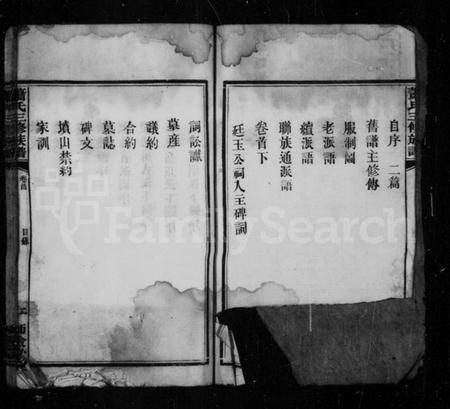 自序 二篇
舊譜主修傳
服制圖
老派語
續派語
聯族通派語
卷首下
廷玉公祠入主碑詞
詞訟讞
墓產
議約
合約
墓誌
碑文
墳山禁約
家訓
蕭氏三修族譜
卷首
目錄
FamilySearch